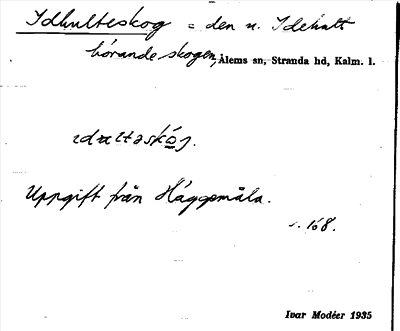 Idhulteskog = den u. Idehult
hörande skogen, Ålems sn, Stranda hd, Kalm. l.
Uppgift från Häggemåla.
s. 168.
Ivar Modéer 1935